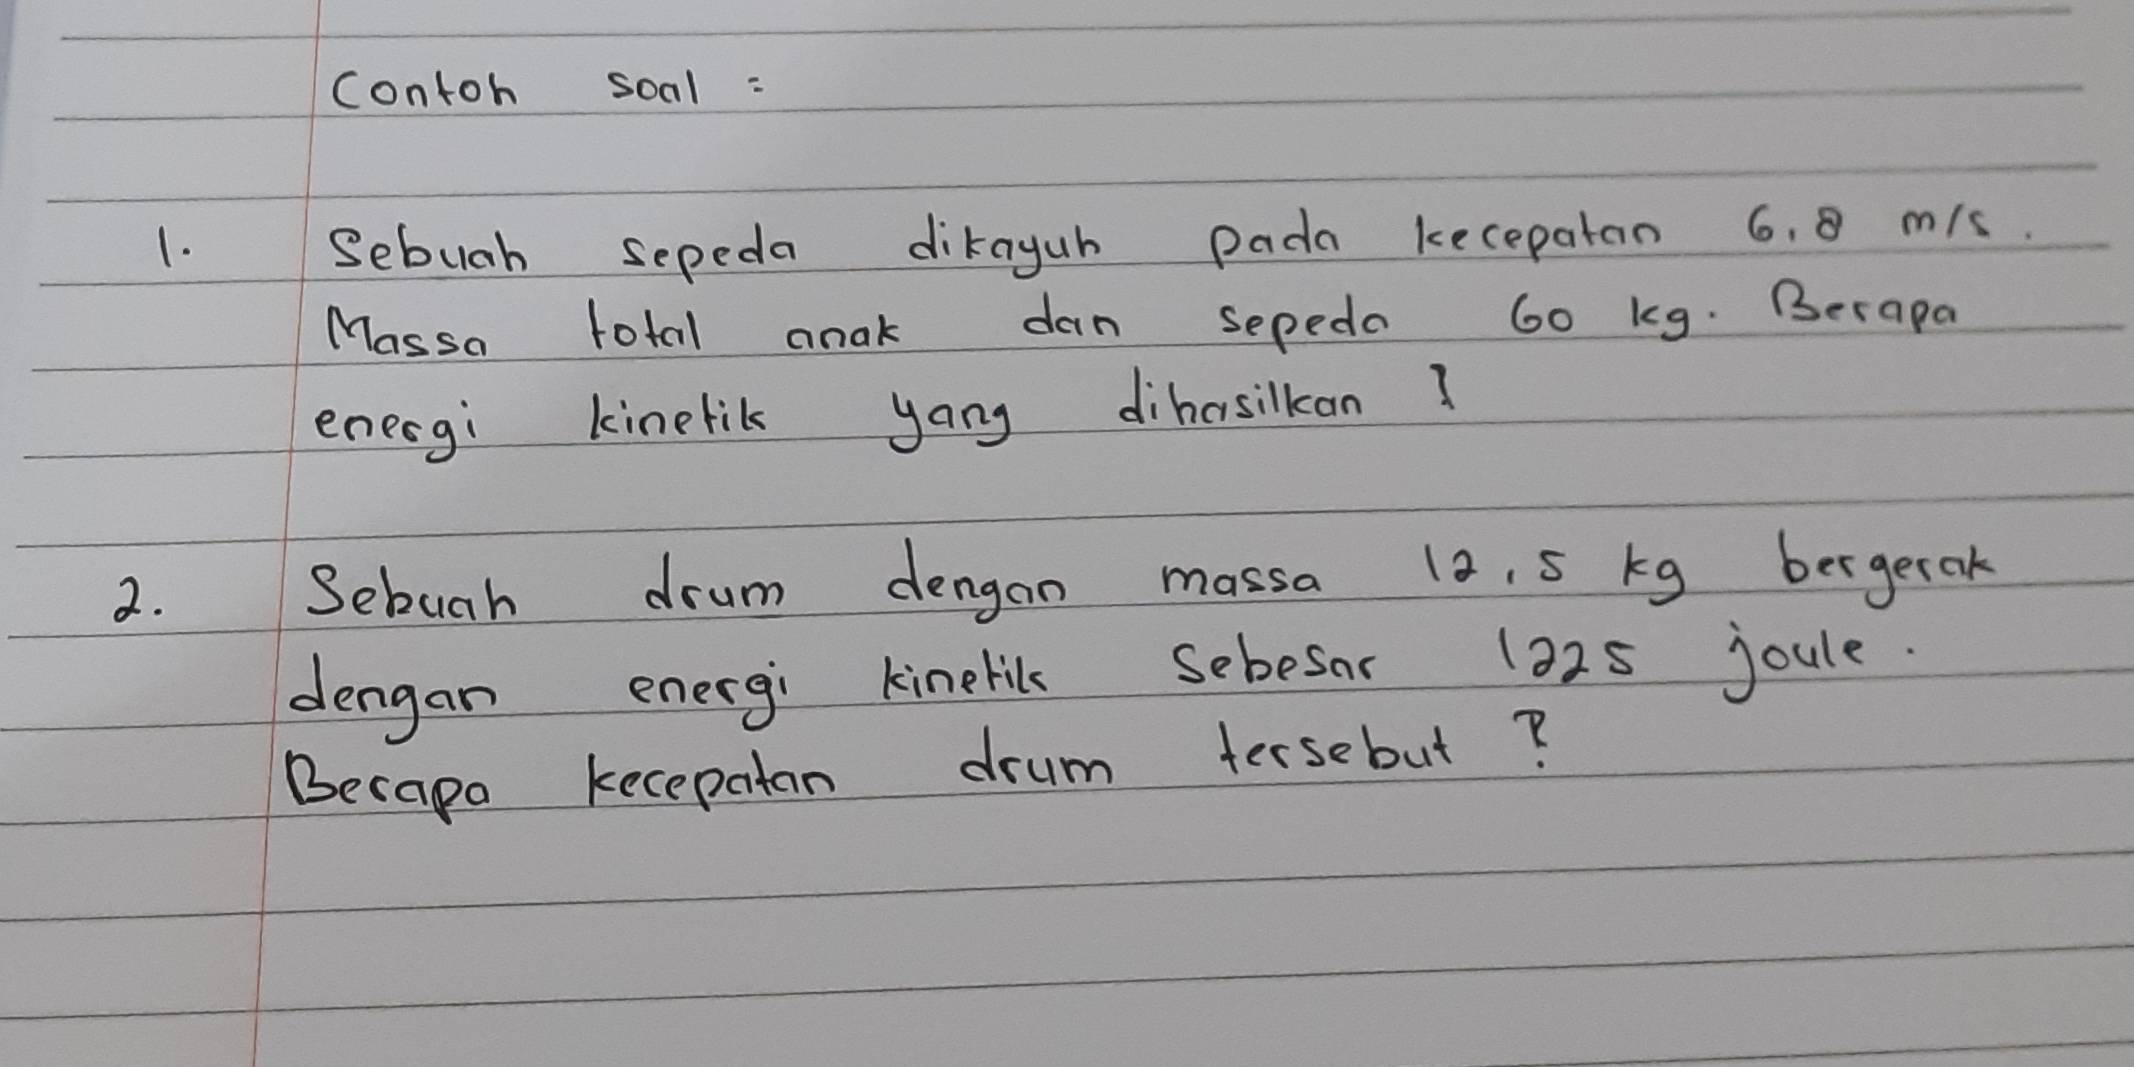 Contoh soal :
1. Sebuah sepeda dikayuh pada kecepatan 6,8 m/s.
Massa total anak dan sepeda 60 kg. Berapa
energi kinetik yang dihasilkan ?
2. Sebuah drum dengan massa 12,5 kg bergerak
dengan energi kinetik sebesar 1225 joule.
Berapa kecepatan drum tersebut ?